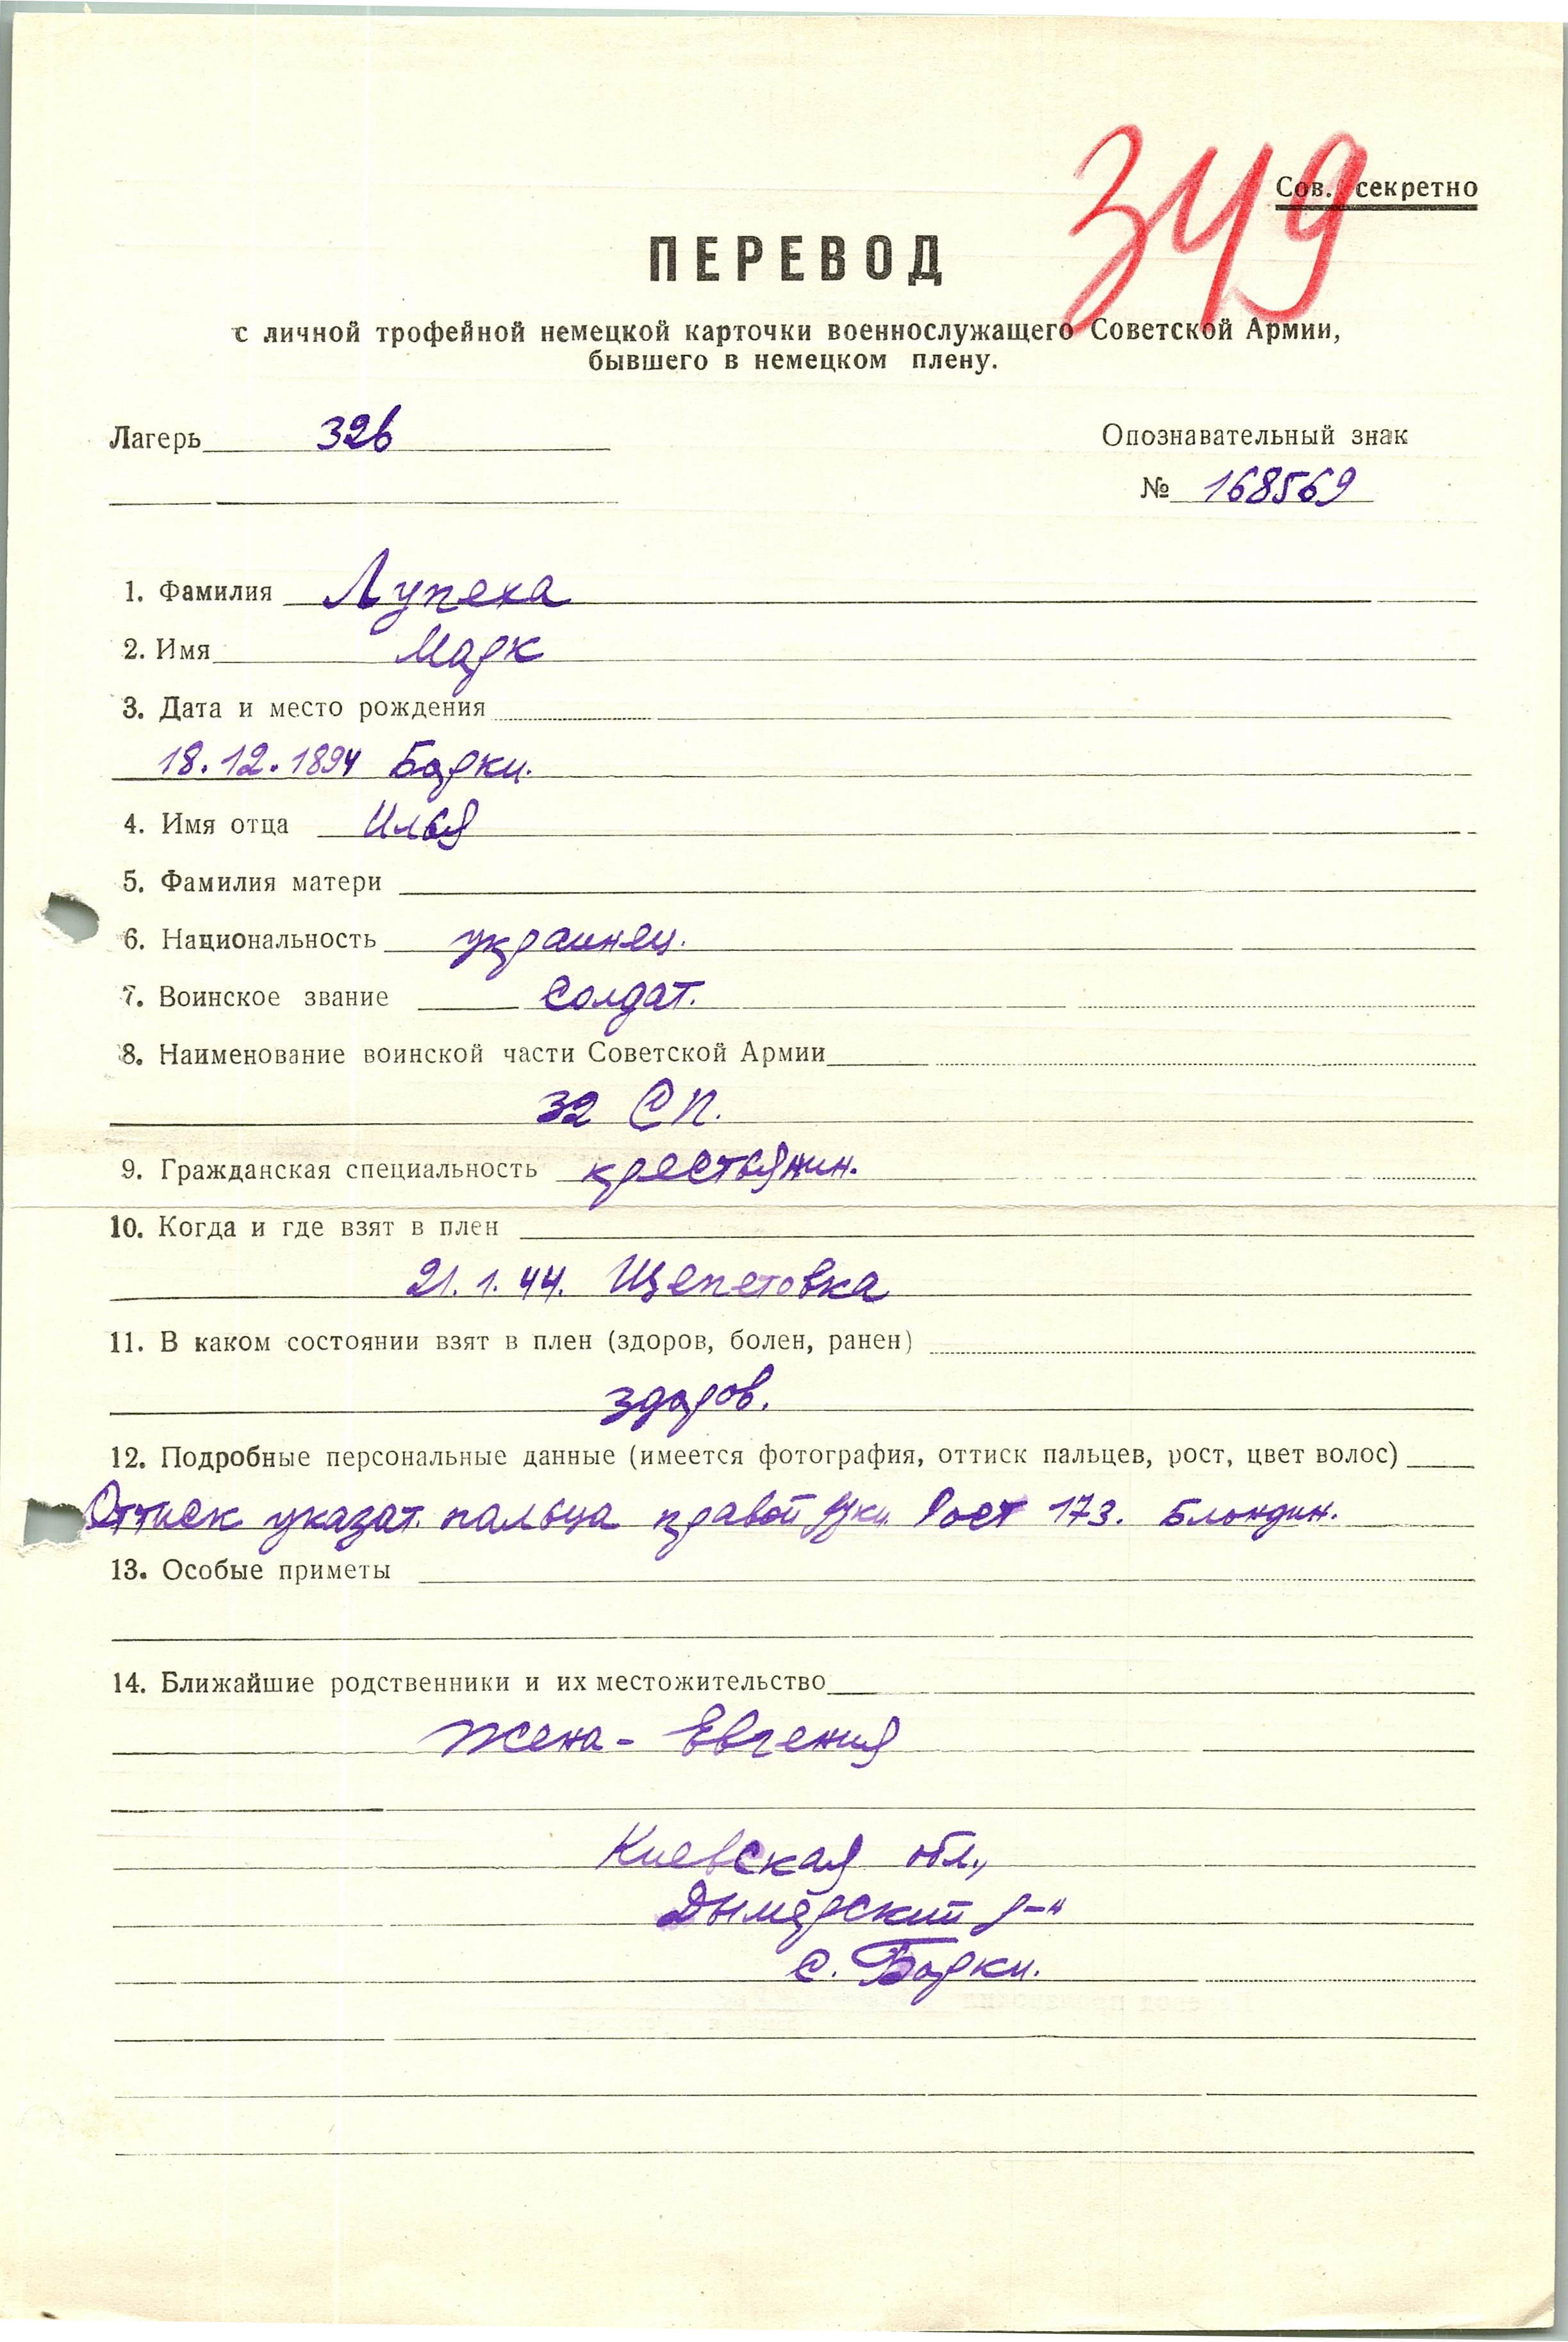 349
Сов. секретно
ПЕРЕВОД
с личной трофейной немецкой карточки военнослужащего Советской Армии,
бывшего в немецком плену.
Лагерь 326
Опознавательный знак
№ 168569
1. Фамилия Лупеха
2. Имя Марк
3. Дата и место рождения
18.12.1894 Борки.
4. Имя отца Илья
5. Фамилия матери
6. Национальность украинец.
7. Воинское звание Солдат.
8. Наименование воинской части Советской Армии
32 СП.
9. Гражданская специальность крестьянин.
10. Когда и где взят в плен
21.1.44. Щепетовка
11. В каком состоянии взят в плен (здоров, болен, ранен)
здоров.
12. Подробные персональные данные (имеется фотография, оттиск пальцев, рост, цвет волос)
Оттиск указат. пальца правой руки Рост 173. Блондин.
13. Особые приметы
14. Ближайшие родственники и их местожительство
Жена - Евгения
Киевская обл.,
Дымерский р-н
с. Борки.